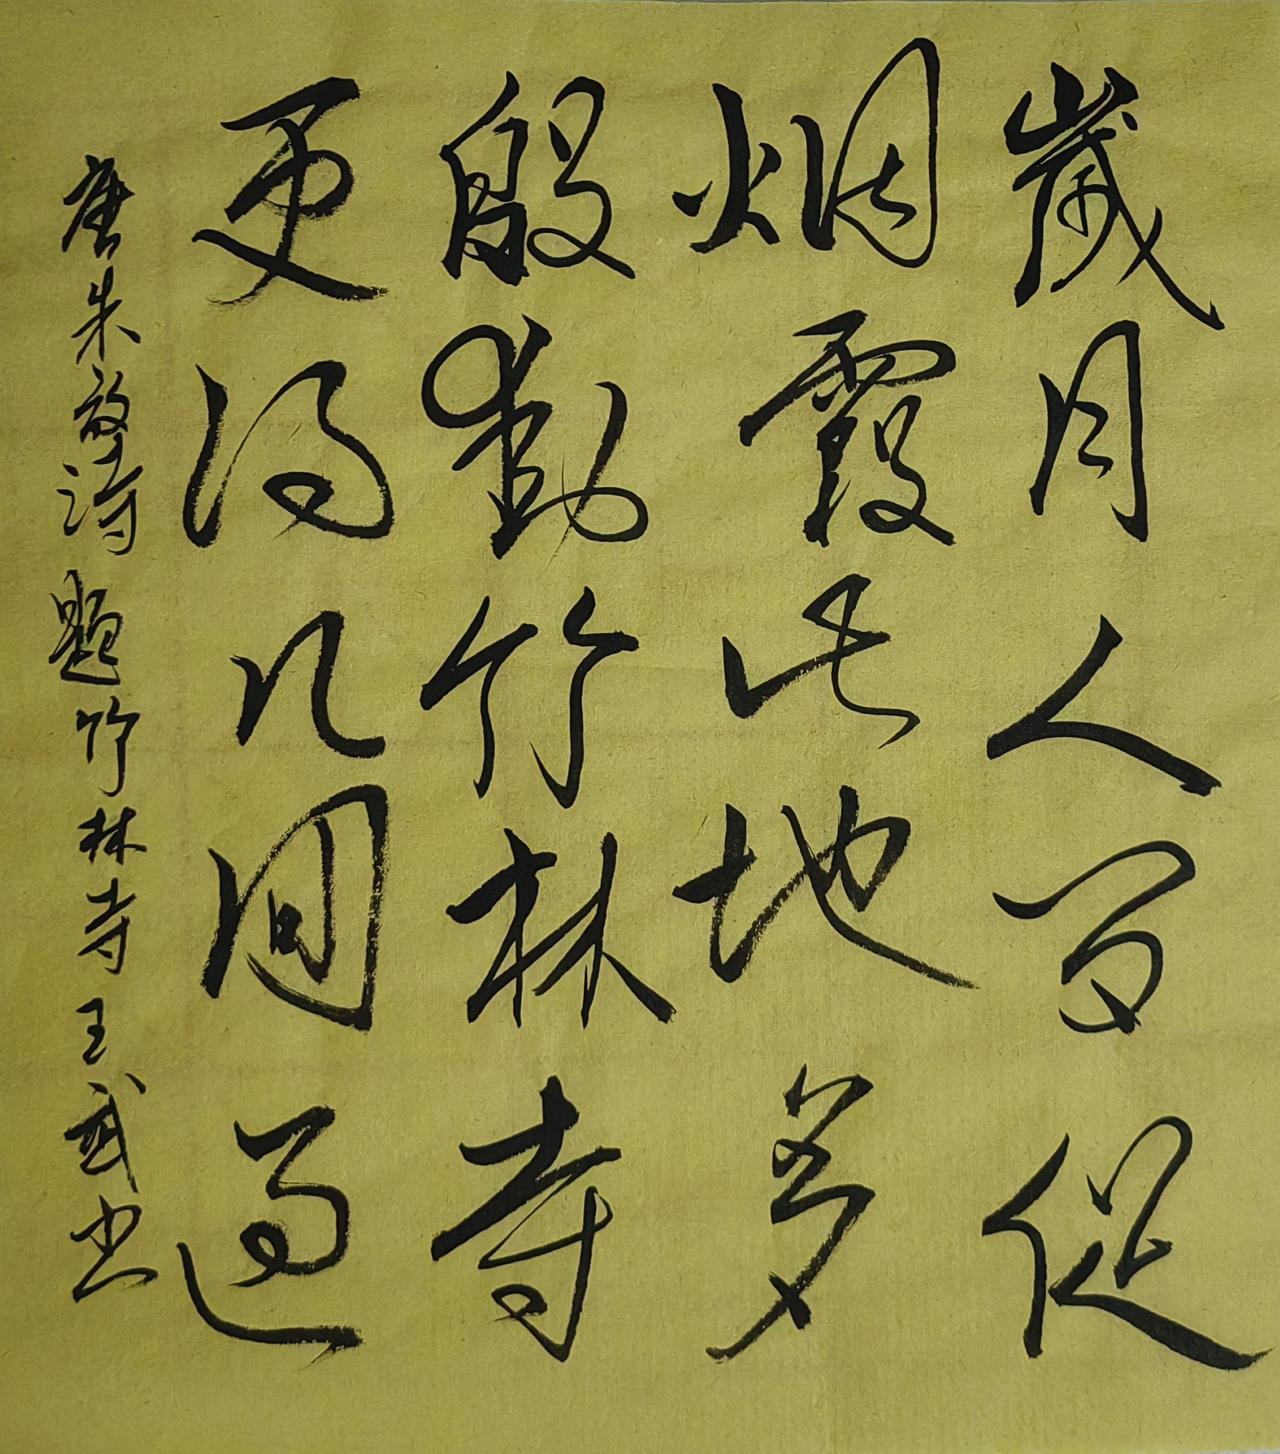 歲月人间促
烟霞此地多
殷勤竹林寺
更得几回过
唐朱放诗题竹林寺王武书